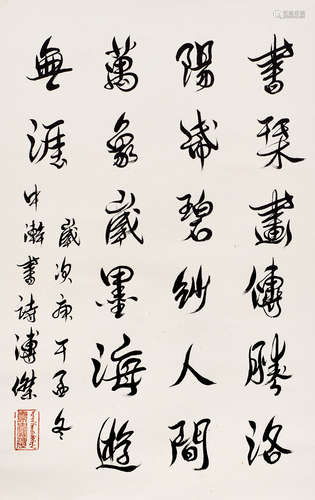 書琹畫傳勝洛
陽碧紗人間
萬象歲墨海遊
無涯
歲次庚午孟冬
中澣書詩溥傑